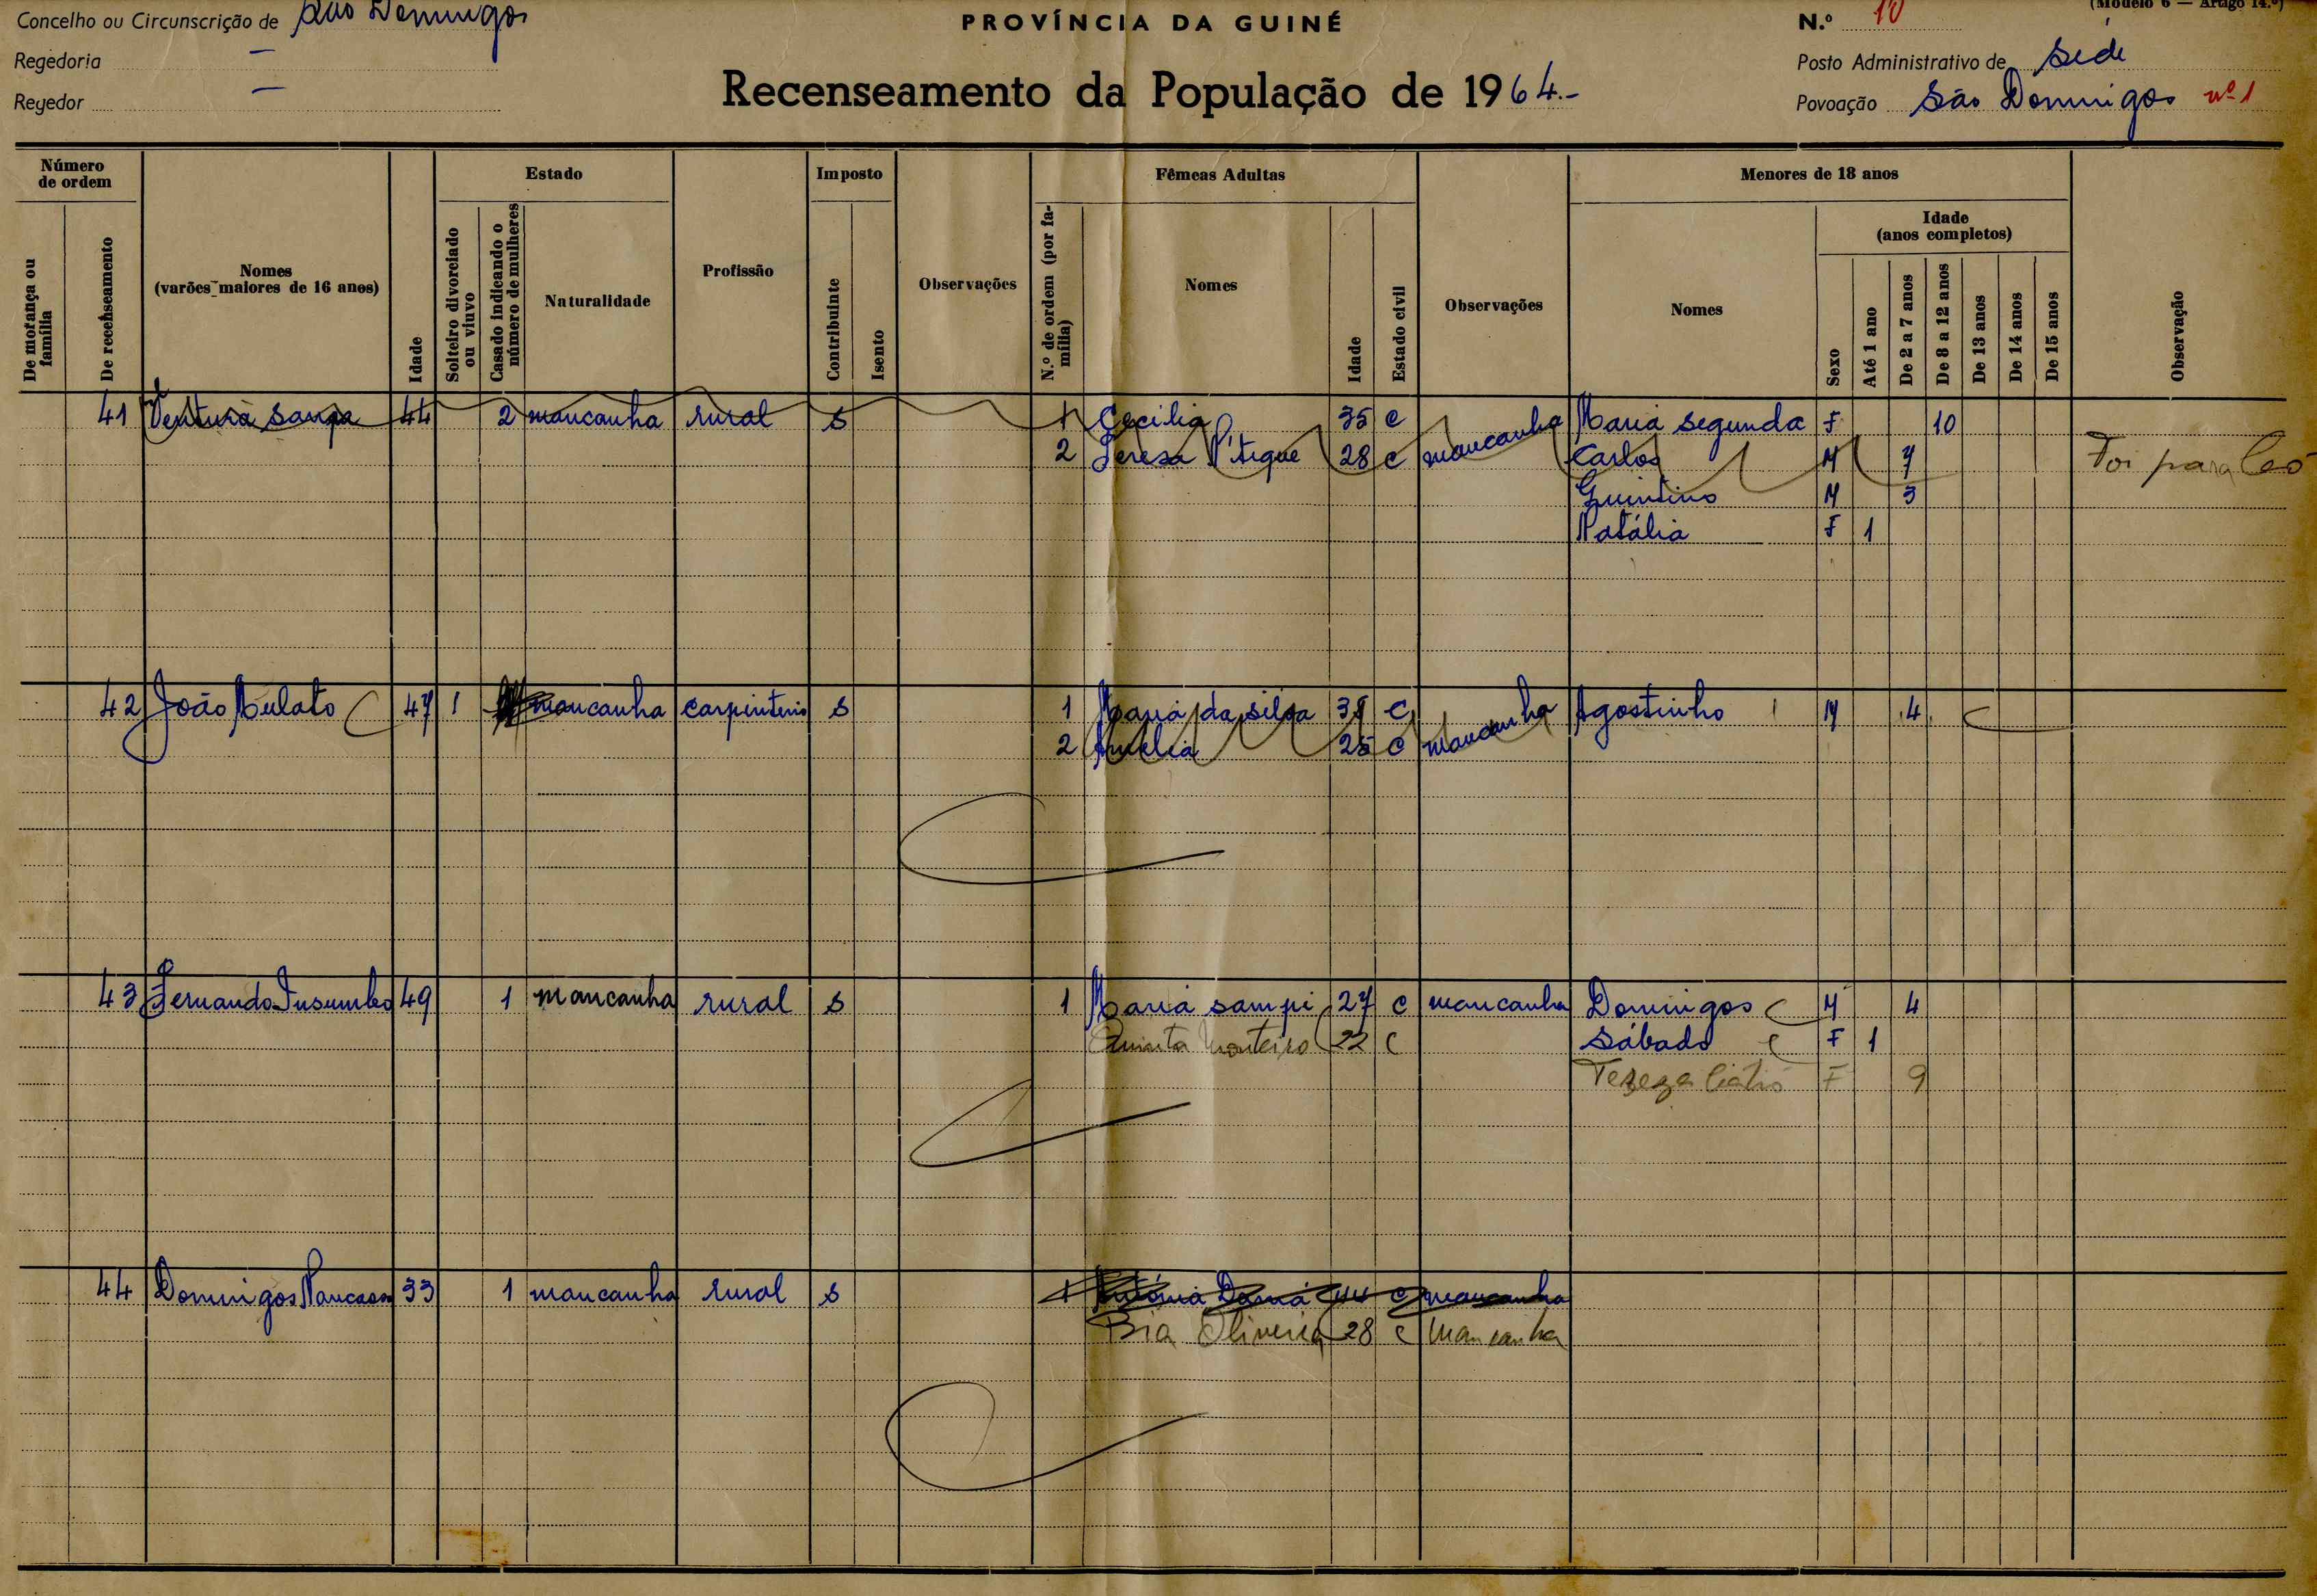 Concelho ou Circunscrição de São Domingos
PROVÍNCIA DA GUINÉ
N.º 10
(Modelo 6 — Artigo 14.º)
Regedoria —
Regedor —
Recenseamento da População de 1964.-
Posto Administrativo de Séde
Povoação São Domingos nº 1
Número de ordem
Estado
Imposto
Fêmeas Adultas
Menores de 18 anos
De morança ou família
De recenseamento
Nomes
(varões maiores de 16 anos)
Idade
Solteiro divorciado ou viuvo
Casado indicando o número de mulheres
Naturalidade
Profissão
Contribuinte
Isento
Observações
N.º de ordem (por família)
Nomes
Idade
Estado civil
Observações
Nomes
Sexo
Idade
(anos completos)
Até 1 ano
De 2 a 7 anos
De 8 a 12 anos
De 13 anos
De 14 anos
De 15 anos
Observação
41 Ventura Sampa 44 2 mancanha rural S 1 Cecilia 35 C mancanha Maria Segunda F 10
2 Teresa 28 C Carlos M 7 Foi para
Quintino M 3
Natália F 1
42 João Mulato 47 1 mancanha carpinteiro S 1 Maria da Silva C mancanha Agostinho M 4
2 Amélia 25 C
43 Fernando Insumbo 49 1 mancanha rural S 1 Maria Sampi 27 C mancanha Domingos M 4
Quinta Monteiro 22 C Sábado F 1
Tereza F 9
44 Domingos 33 1 mancanha rural S 1 Antónia 44 C mancanha
Bia Oliveira 28 C mancanha